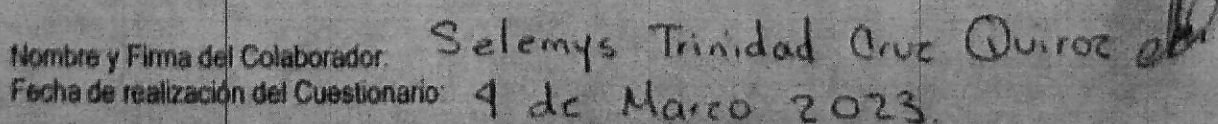 Nombre y Firma del Colaborador. Selemys Trinidad Cruz Quiroz
Fecha de realización del Cuestionario: 9 de Marzo 2023.